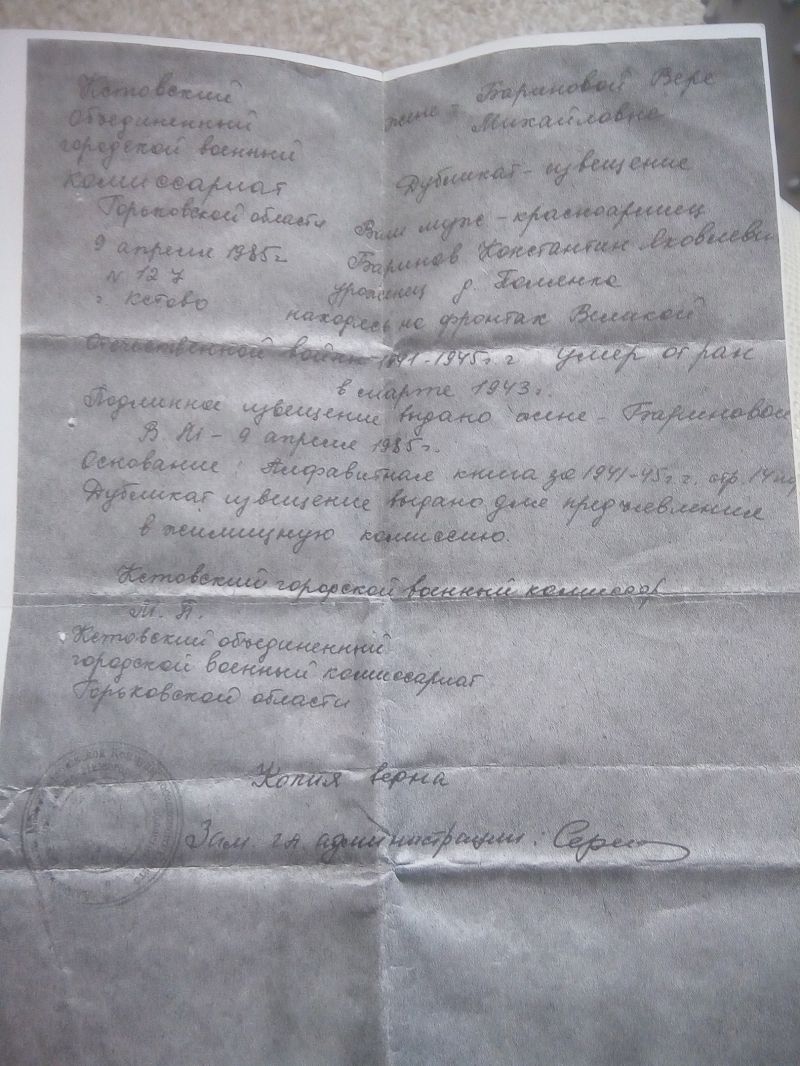 Кстовский
Объединенный
городской военный
комиссариат
Горьковской области
9 апреля 1985г
N 127
г Кстово
жене - Бариновой Вере
Михайловне
Дубликат - извещение
Ваш муж - красноармеец
Баринов Константин Яковлеви
уроженец д.
находясь на фронтах Великой
Отечественной войны 1941-1945г. г умер от ран
в марте 1943г.
Подлинное извещение выдано жене - Бариновой
В М - 9 апреля 1985г.
Основание: Алфавитная книга за 1941-45г г. стр. 14
Дубликат извещение выдано для предъявления
в жилищную комиссию.
Кстовский городской военный комиссар
М. П.
Кстовский объединенный
городской военный комиссариат
Горьковской области
Копия верна
Зам. гл администрации: